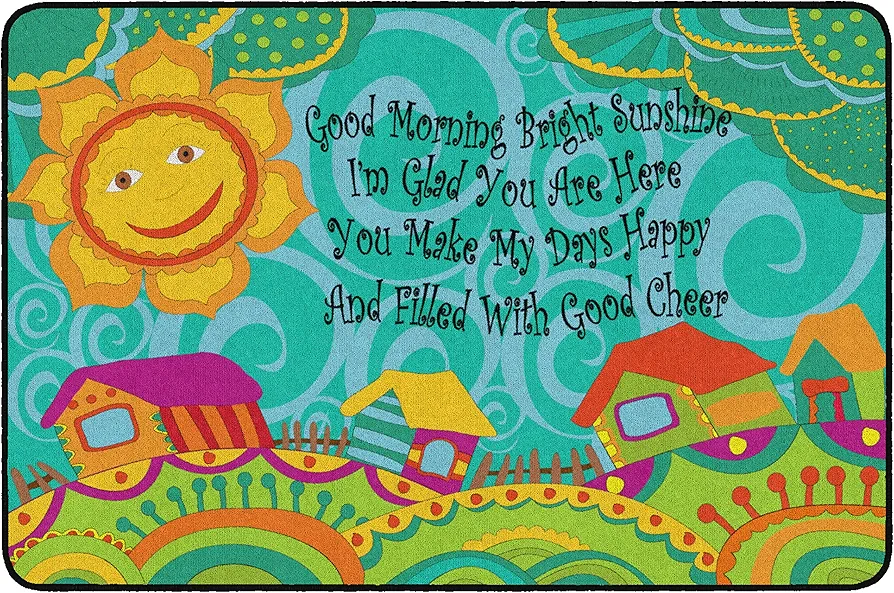 Good Morning Bright Sunshine
I'm Glad You Are Here
You Make My Days Happy
And Filled With Good Cheer